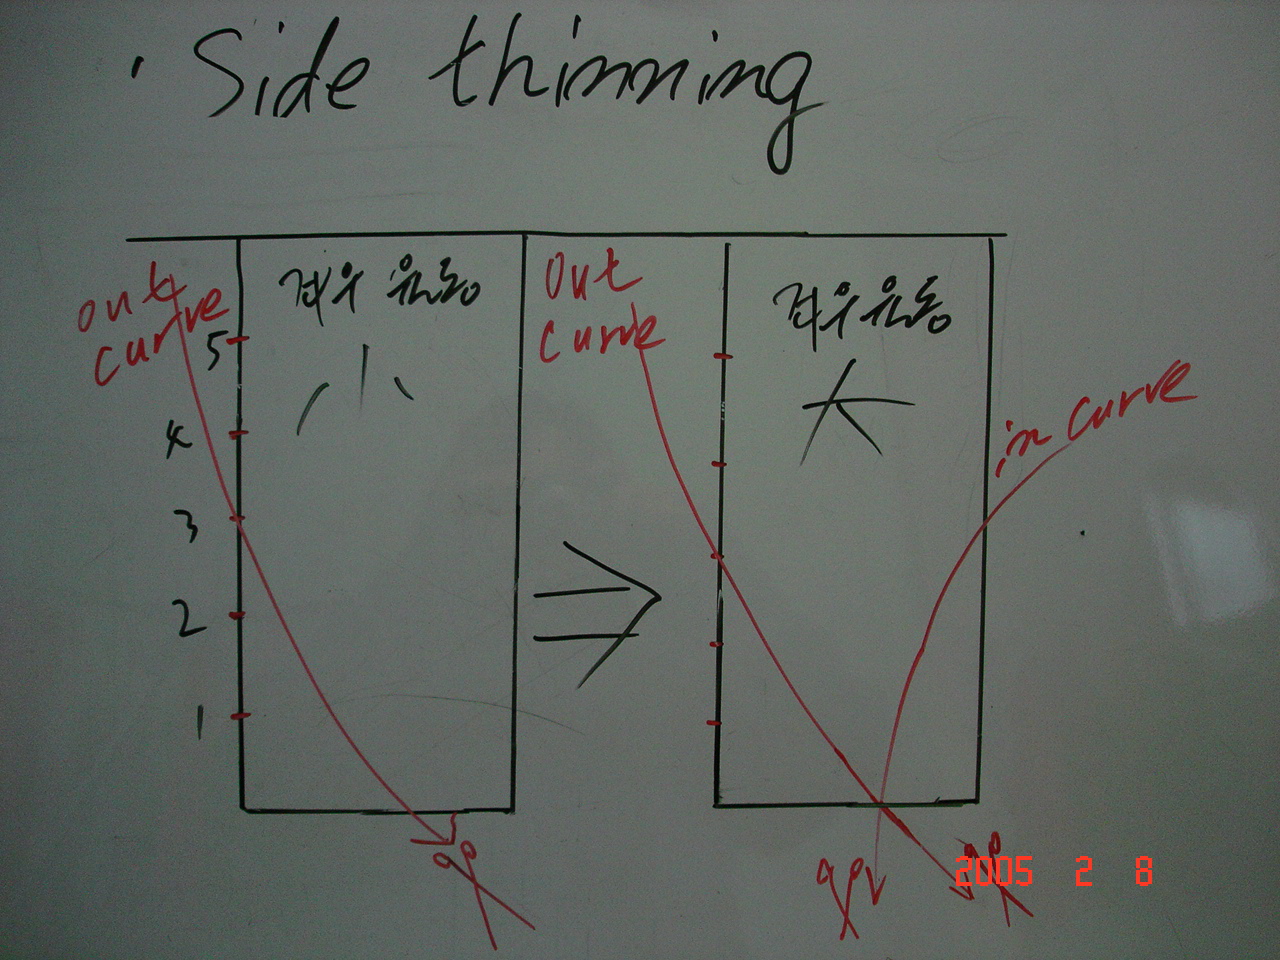 · Side thinning
out
curve
5
4
3
2
1
좌우 운동
小
out
curve
좌우운동
大
in curve
2005 2 8